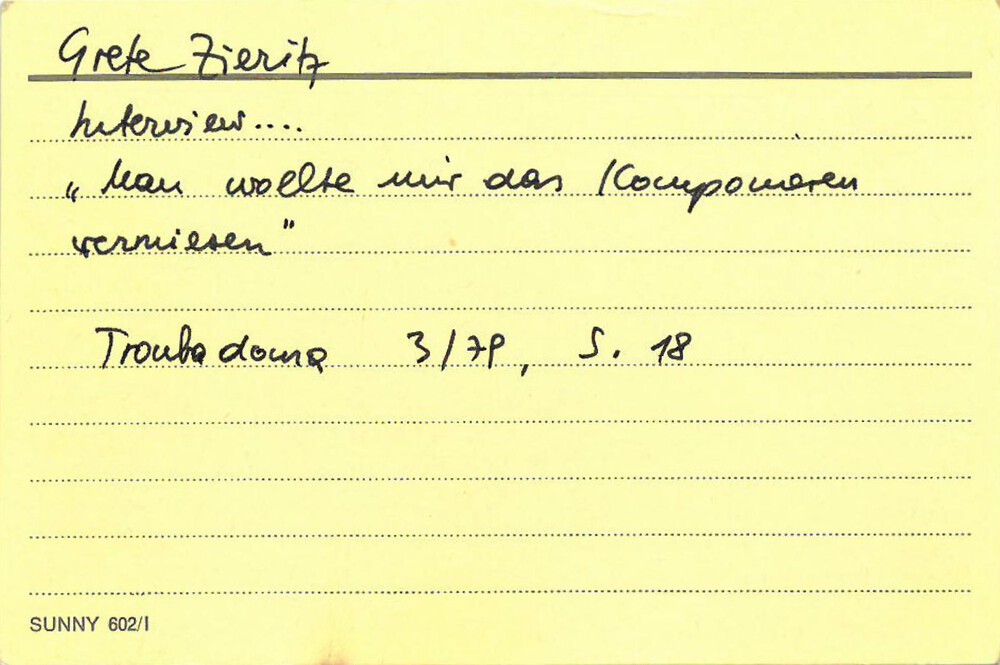 Grete Zieritz
Interview....
„Man wollte mir das Komponieren
vermiesen"
Troubadoura 3/79, S. 18
SUNNY 602/I